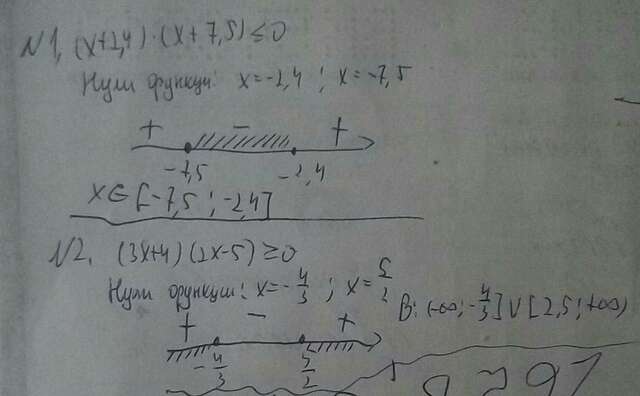 N1. (x+2,4)·(x+7,5)≤0
Нули функции: x=-2,4 ; x=-7,5
+ - +
-7,5 -2,4
x∈[-7,5 ; -2,4]
N2. (3x+4)(2x-5)≥0
Нули функции: x=-4/3 ; x=5/2
В: (-∞; -4/3]∪[2,5; +∞)
+ - +
-4/3 5/2